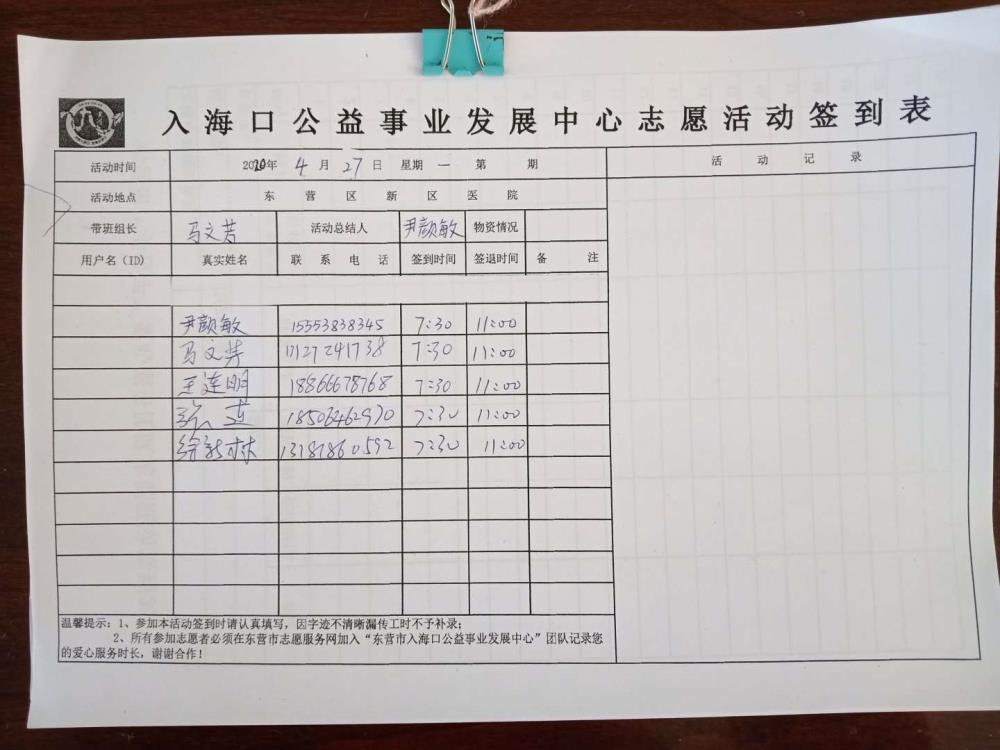 入海口公益事业发展中心志愿活动签到表
活动时间 2020年 4月 27日 星期一 第 期 活动记录
活动地点 东营区新区医院
带班组长 马文芳 活动总结人 尹颜敏 物资情况
用户名（ID） 真实姓名 联系电话 签到时间 签退时间 备注
尹颜敏 15553838345 7:30 11:00
马文芳 17127241738 7:30 11:00
王连明 18866678768 7:30 11:00
18506462970 7:30 11:00
徐新林 13181860592 7:30 11:00
温馨提示：1、参加本活动签到时请认真填写，因字迹不清晰漏传工时不予补录；
2、所有参加志愿者必须在东营市志愿服务网加入“东营市入海口公益事业发展中心”团队记录您
的爱心服务时长，谢谢合作！